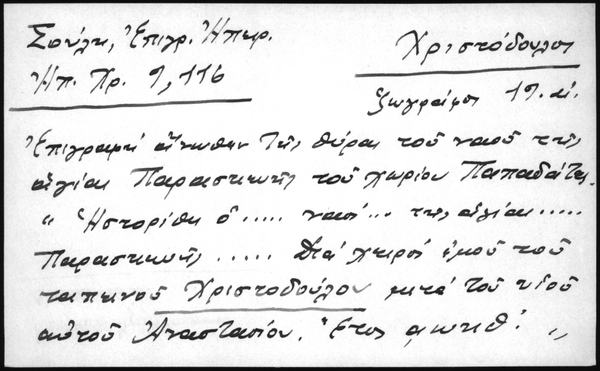 Σούλη, Ἐπιγρ. Ἠπειρ.
Χριστόδουλος
Ἠπ. Χρ. 9, 116
ζωγράφος 19. αἰ.
Ἐπιγραφή ἄνωθεν τῆς θύρας τοῦ ναοῦ τῆς
ἁγίας Παρασκευῆς τοῦ χωρίου Παπαδάτες
" Ἡστορίθη ὁ ..... ναος ... της αγίας .....
Παρασκευῆς ..... διά χειρός ἐμοῦ τοῦ
ταπεινοῦ Χριστοδούλου μετά τοῦ υἱοῦ
αὐτοῦ Ἀναστασίου. Ἔτος αωκθ΄ "